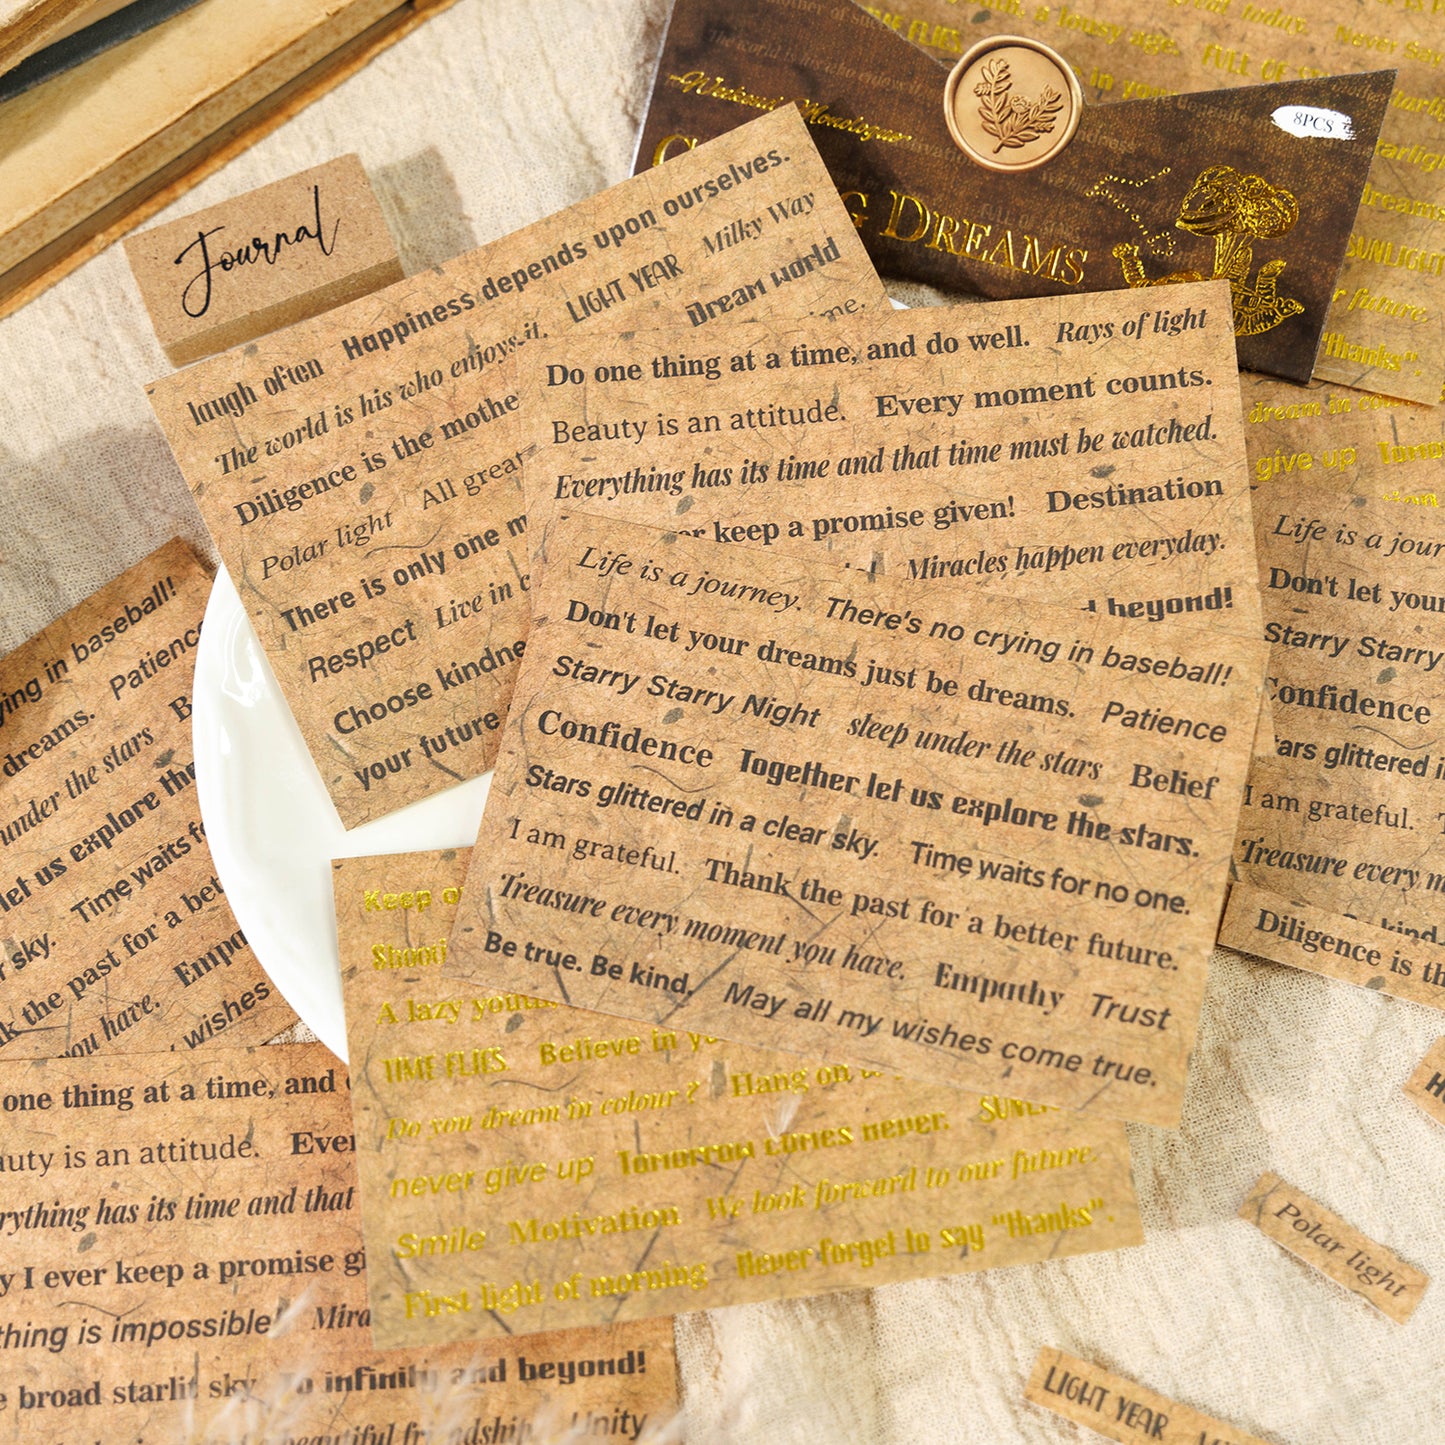 Journal
Weekend Monologue
8PCS
G DREAMS
a lousy age.
great today.
Never say
FULL OF
in your
dreams
SUNLIGHT
r future.
"thanks".
dream in
give up
laugh often Happiness depends upon ourselves.
The world is his who enjoys it. LIGHT YEAR Milky Way
Diligence is the mothe Dream world
Polar light All great ime.
There is only one m
Respect Live in c
Choose kindne
your future
Do one thing at a time, and do well. Rays of light
Beauty is an attitude. Every moment counts.
Everything has its time and that time must be watched.
er keep a promise given! Destination
Miracles happen everyday.
beyond!
Life is a journey. There's no crying in baseball!
Don't let your dreams just be dreams. Patience
Starry Starry Night sleep under the stars Belief
Confidence Together let us explore the stars.
Stars glittered in a clear sky. Time waits for no one.
I am grateful. Thank the past for a better future.
Treasure every moment you have. Empathy Trust
Be true. Be kind. May all my wishes come true.
Life is a jour
Don't let your
Starry Starry
Confidence
tars glittered i
I am grateful.
Treasure every m
kind.
Diligence is th
ying in baseball!
dreams. Patience
under the stars B
let us explore the
r sky. Time waits fo
k the past for a bet
ou have. Empa
wishes
Keep o
Shooti
A lazy youth
TIME FLIES. Believe in yo
Do you dream in colour? Hang on
never give up Tomorrow comes never. SUNLI
Smile Motivation We look forward to our future.
First light of morning Never forget to say "thanks".
one thing at a time, and
auty is an attitude. Ever
rything has its time and that
y I ever keep a promise gi
thing is impossible! Mira
e broad starlit sky To infinity and beyond!
beautiful friendship. Unity
Polar light
LIGHT YEAR